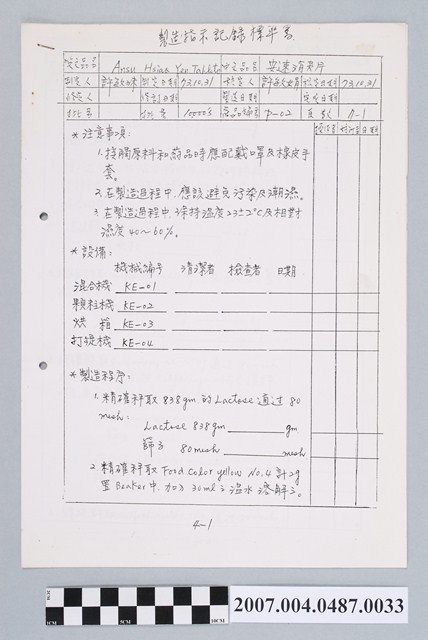 製造指示記錄標準書
英文品名 Ansu Hsiao Yen Tablets 中文品名 安速消炎片
制定人 許敏味 制定日期 73.10.31 核定人 許敏嬪 核定日期 73.10.31
修定人 修訂日期 製造日期 完成日期
批號 批量 10000's 產品編號 P-02 頁數 7-1
操作者 核對者 日期
*注意事項:
1.接觸原料和药品時應配戴口罩及橡皮手
套。
2.在製造過程中,應該避免污染及潮濕。
3.在製造過程中,保持溫度23±2°C及相對
濕度40~60%。
*設備:
機械編號 清潔者 檢查者 日期
混合機 KE-01
顆粒機 KE-02
烘箱 KE-03
打錠機 KE-04
*製造程序:
1.精確秤取838gm的Lactose通过80
mesh:
Lactose 838gm gm
篩子 80mesh mesh
2.精確秤取Food Color yellow No.4計2g
置Beaker中,加入30ml之溫水溶解之。
4-1
2007.004.0487.0033